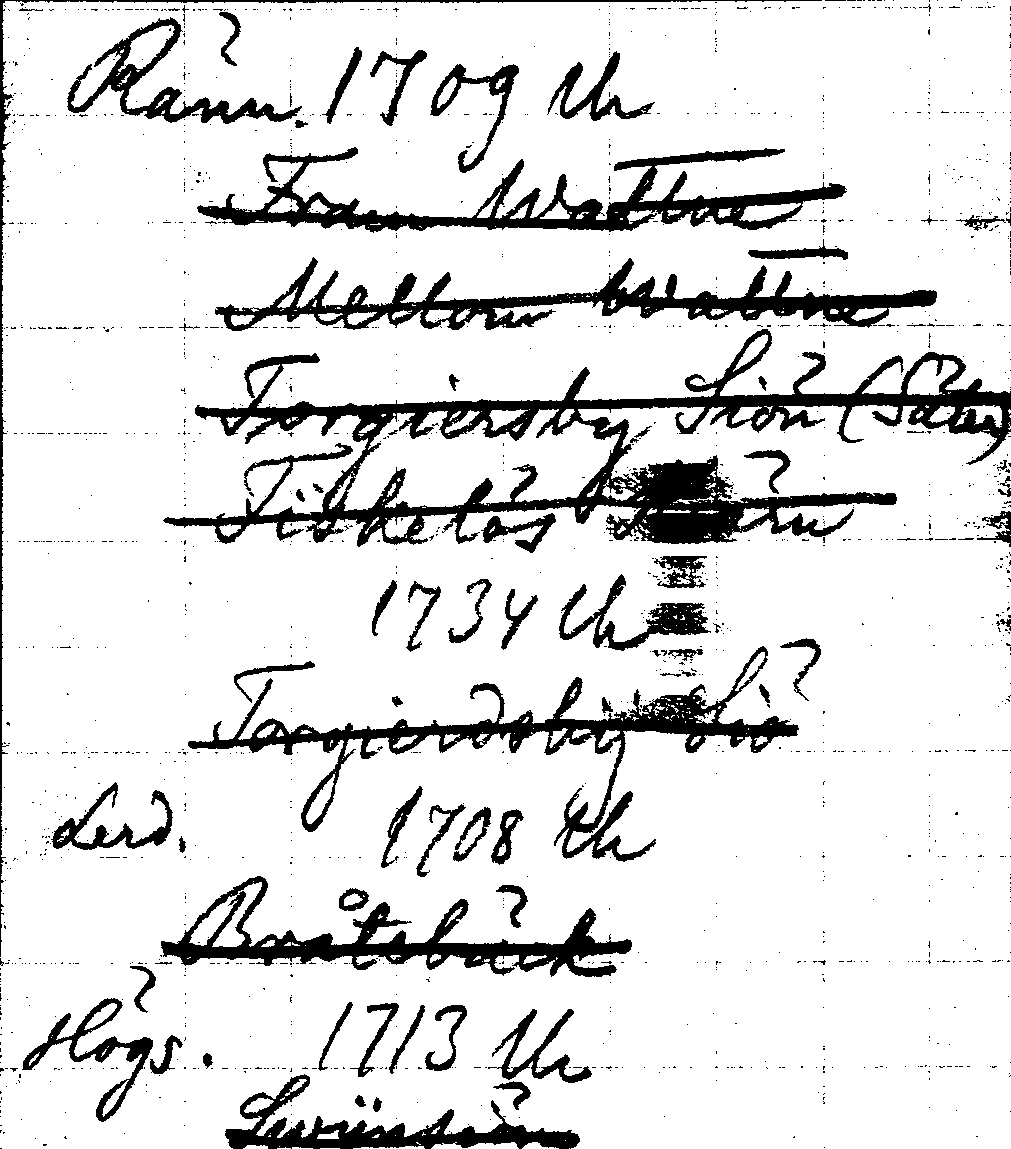 Ränn. 1709 Vh
Fram Wattne
Mellom Wattne
Torgiersby Siön (Säter)
Fiskelös Kiärn
1734 Vh
Torgierdsby Siö
Lerd. 1708 Vh
Bråtebäck
Högs. 1713 Vh